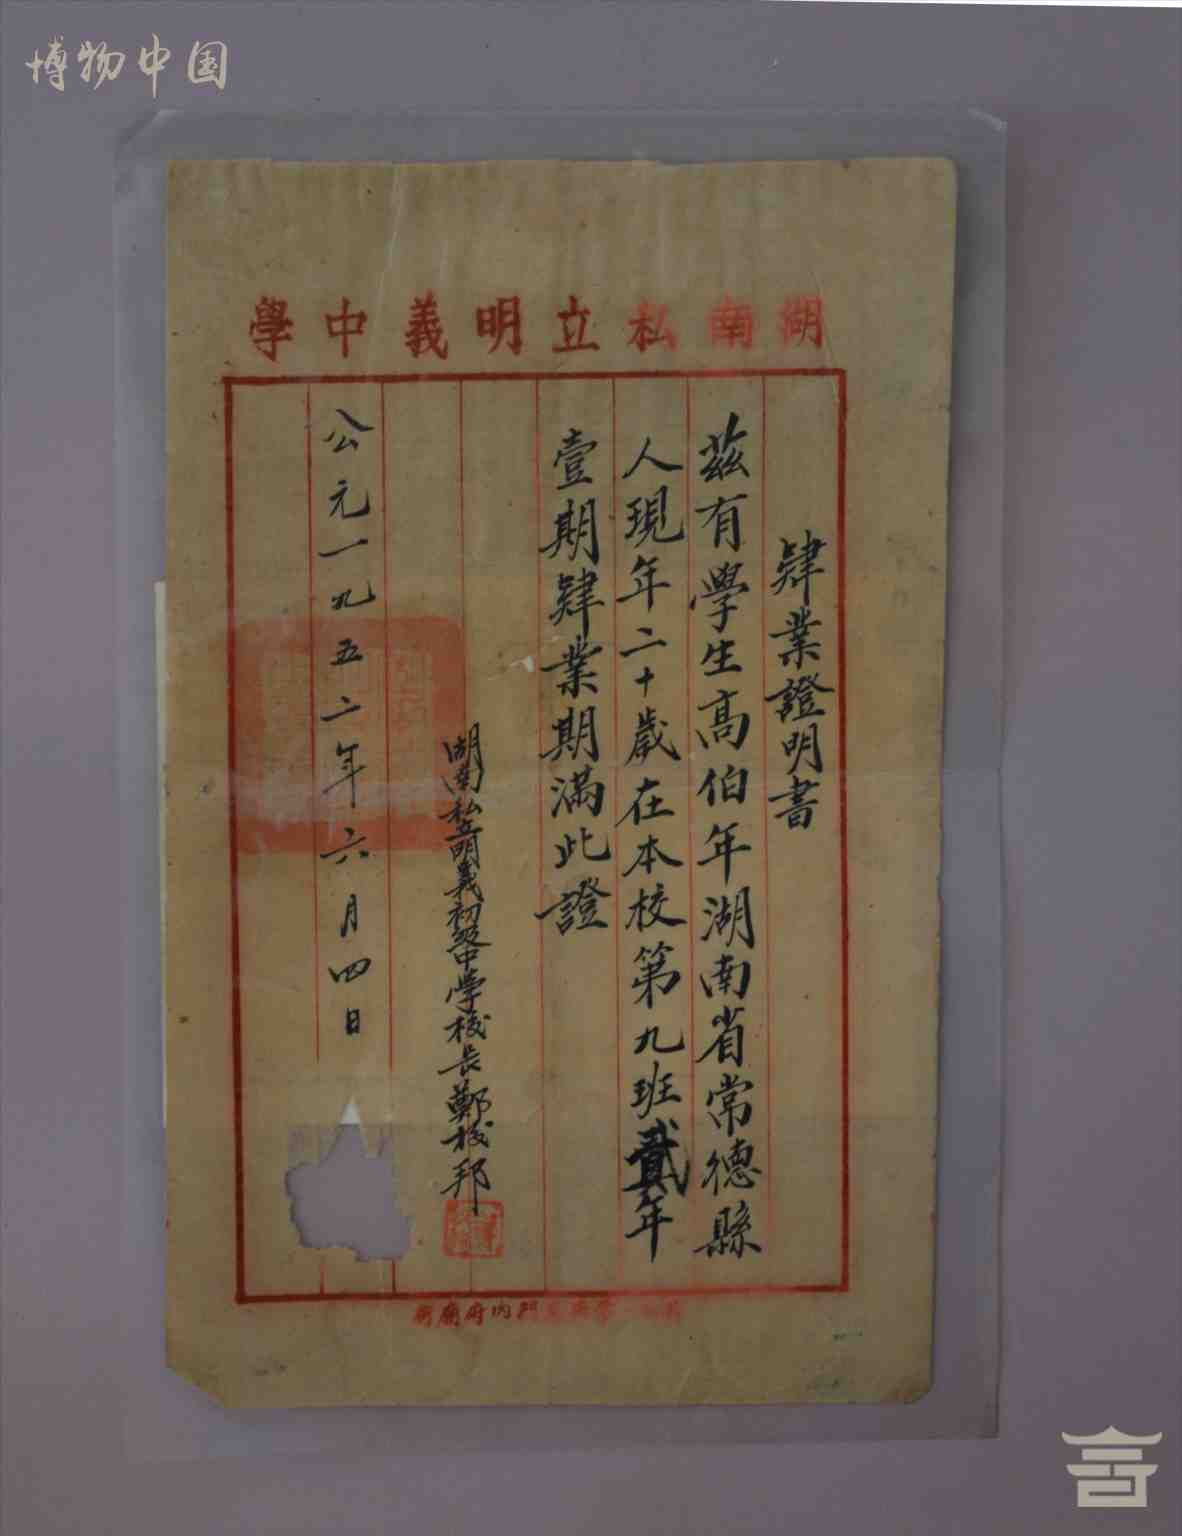 博物中国
湖南私立明義中學
肄業證明書
茲有學生高伯年湖南省常德縣
人現年二十歲在本校第九班貳年
壹期肄業期滿此證
湖南私立明義初級中学校長鄭校邦
公元一九五二年六月四日
門內府廟街